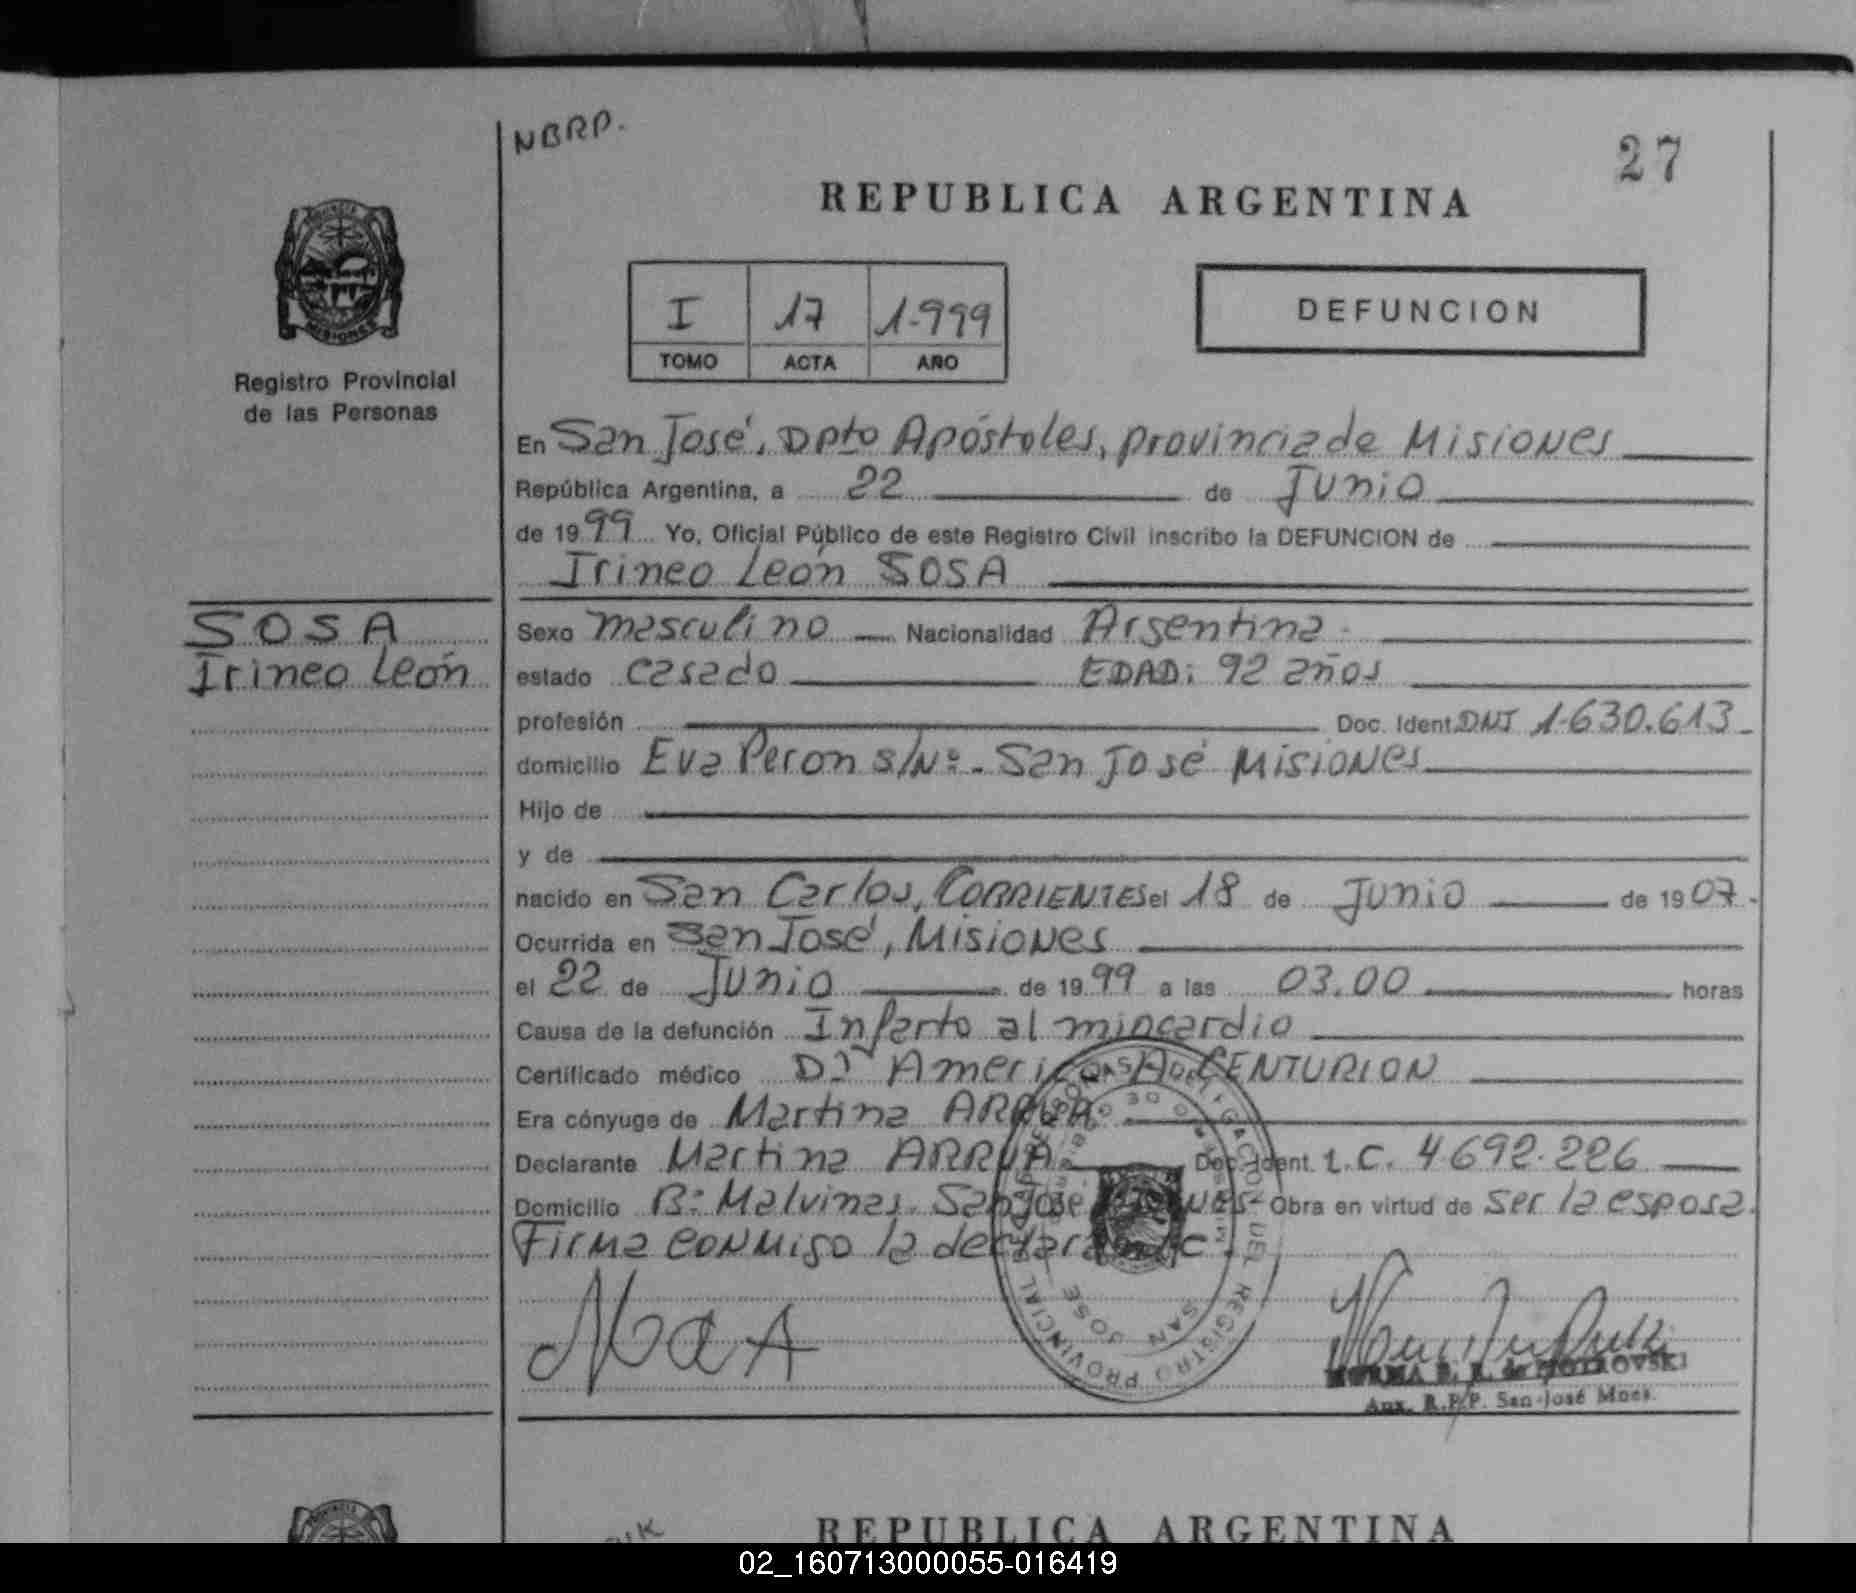 NBRP.
27
REPUBLICA ARGENTINA
PROVINCIA
MISIONES
I 17 1.999
TOMO ACTA AÑO
DEFUNCION
Registro Provincial
de las Personas
En San José, Dpto Apóstoles, provincia de Misiones
República Argentina, a 22 de Junio
de 1999 Yo, Oficial Público de este Registro Civil inscribo la DEFUNCION de
Irineo León SOSA
SOSA
Irineo León
Sexo masculino Nacionalidad Argentina.
estado casado EDAD: 92 años
profesión Doc. Ident. DNI 1.630.613
domicilio Eva Peron s/Nº. San José Misiones
Hijo de
y de
nacido en San Carlos, CORRIENTES el 18 de Junio de 1907.
Ocurrida en San José, Misiones
el 22 de Junio de 1999 a las 03.00 horas
Causa de la defunción Infarto al miocardio
Certificado médico Dr Americo A. CENTURION
Era cónyuge de Martina ARRUA
Declarante Martina ARRUA Doc. Ident. L.C. 4692.226
Domicilio Bº Malvinas. San José Misiones Obra en virtud de ser la esposa.
Firma conmigo la declarante.
DELEGACION DEL REGISTRO PROVINCIAL
SAN JOSE
Aux. R.P.P. San José Mnes.
REPUBLICA ARGENTINA
02_160713000055-016419